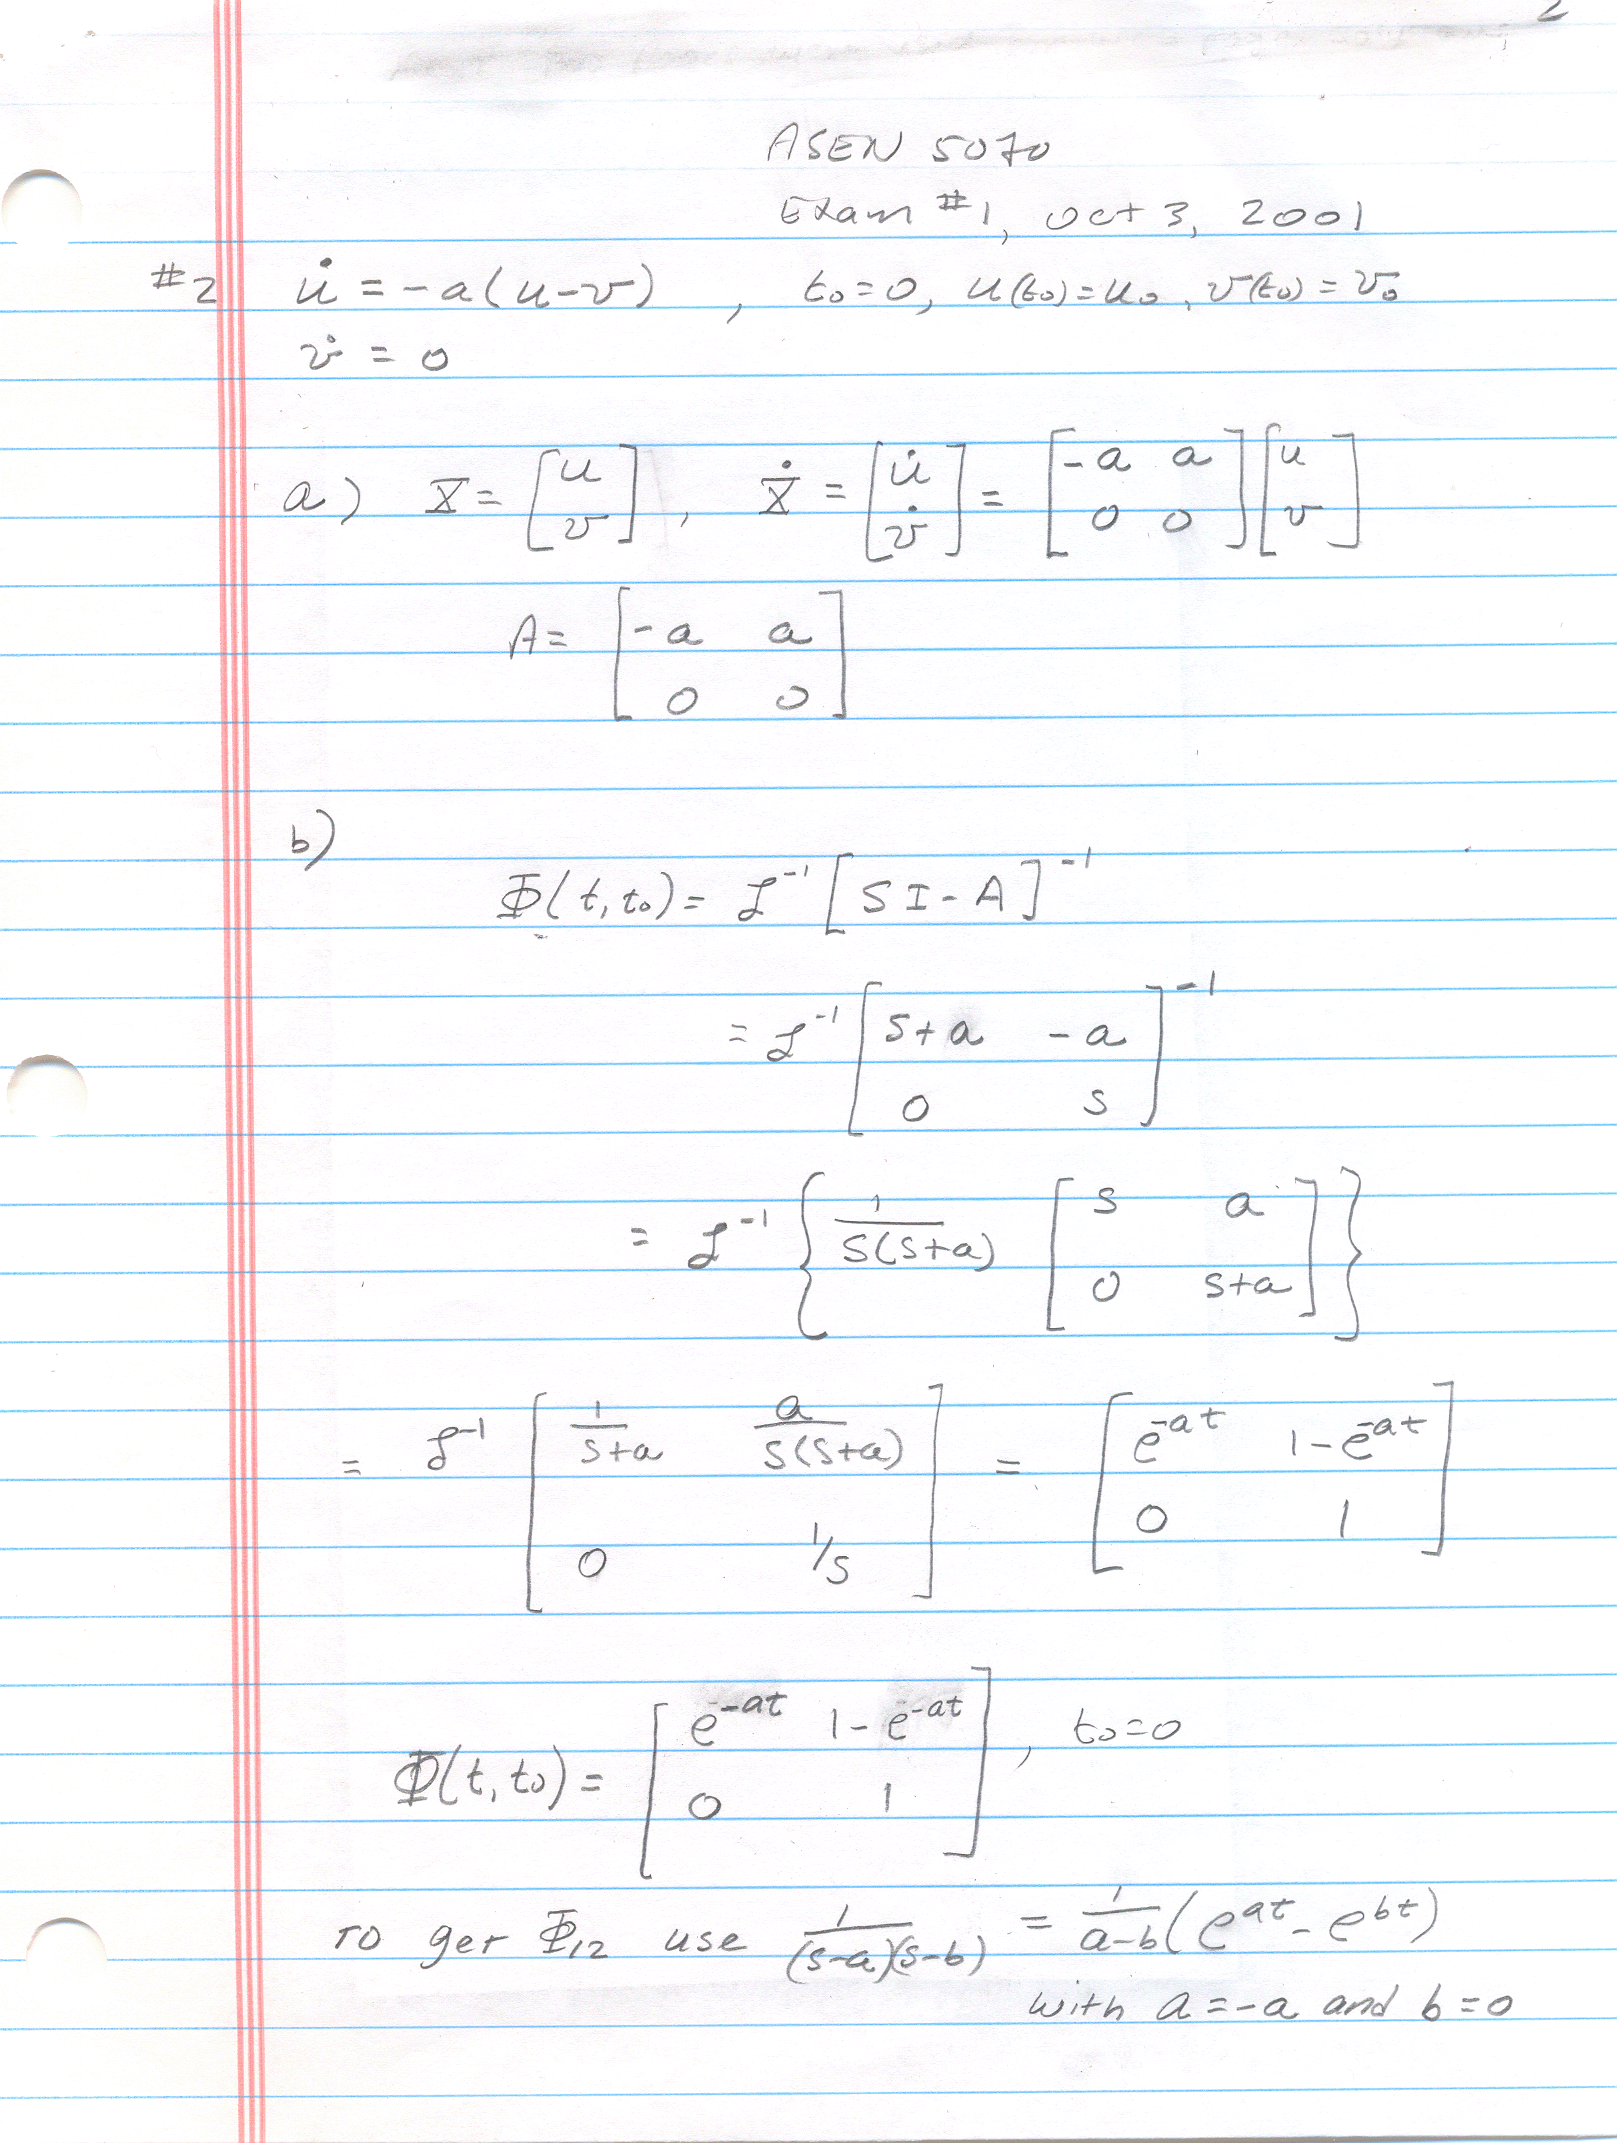 2
ASEN 5070
Exam #1, Oct 3, 2001
#2 u̇ = -a(u-v) , t₀=0, u(t₀)=u₀, v(t₀)=v₀
v̇ = 0
a) X = [u; v], Ẋ = [u̇; v̇] = [-a a; 0 0][u; v]
A = [-a a; 0 0]
b)
Φ(t,t₀) = ℒ⁻¹ [SI-A]⁻¹
= ℒ⁻¹ [s+a -a; 0 s]⁻¹
= ℒ⁻¹ { 1/(s(s+a)) [s a; 0 s+a] }
= ℒ⁻¹ [1/(s+a) a/(s(s+a)); 0 1/s] = [e^-at 1-e^-at; 0 1]
Φ(t,t₀) = [e^-at 1-e^-at; 0 1], t₀=0
To get Φ₁₂ use 1/((s-a)(s-b)) = 1/(a-b) (e^at - e^bt)
with a=-a and b=0